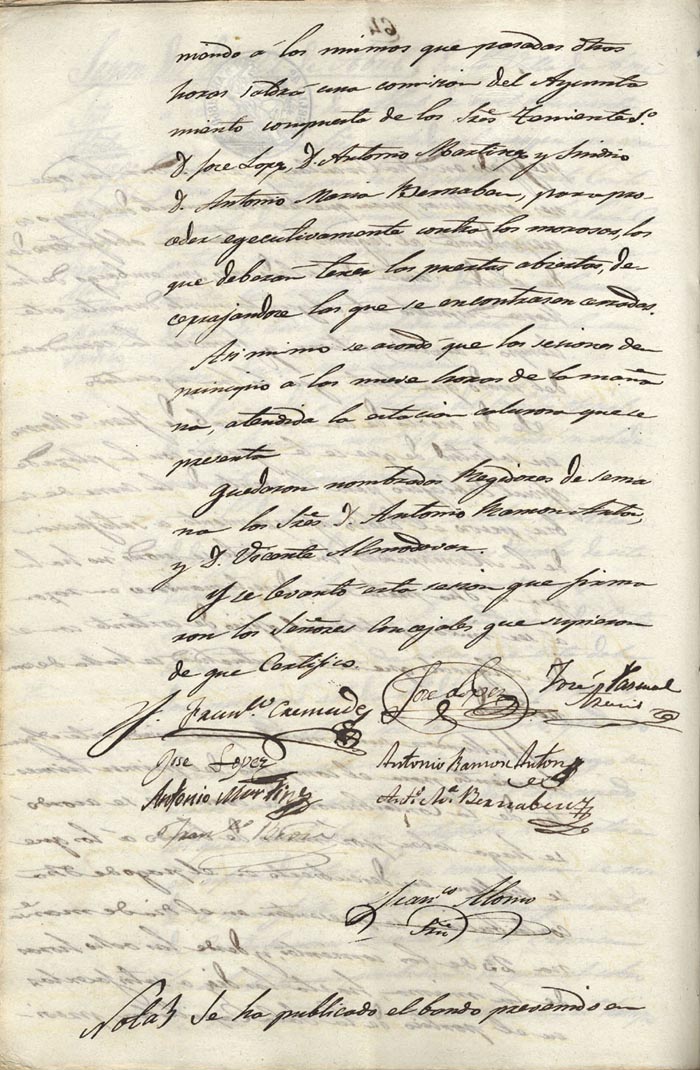 niendo á los mismos que pasadas otras
horas saldrá una comision del Ayunta
miento compuesta de los Sres. Teniente 1.º
D. Jose Lopz, D. Antonio Martinez y Sindico
D. Antonio Maria Bernabeu, para pro-
ceder egecutivamente contra los morosos, los
que deberan tener las puertas abiertas, de-
cerrajandose las que se encontrasen cerradas.
Asi mismo se acordo que las sesiones den
principio á las nueve horas de la maña
na, atendida la estacion calurosa que se
presenta
Quedaron nombrados Regidores de sema
na los Sres. D. Antonio Ramon Anton,
y D. Vicente Almodovar.
Y se levanto esta sesion que firma
ron los Señores Concejales que supieron
de que Certifico.
Fran.co Cremades
Jose Lopez
José Pascual
Jose Lopez
Antonio Ramon Anton
Antonio Martinez
Ant.º M.ª Bernabeu
Fran.co
Fran.co Alonso
Srio
Nota Se ha publicado el bando prevenido en